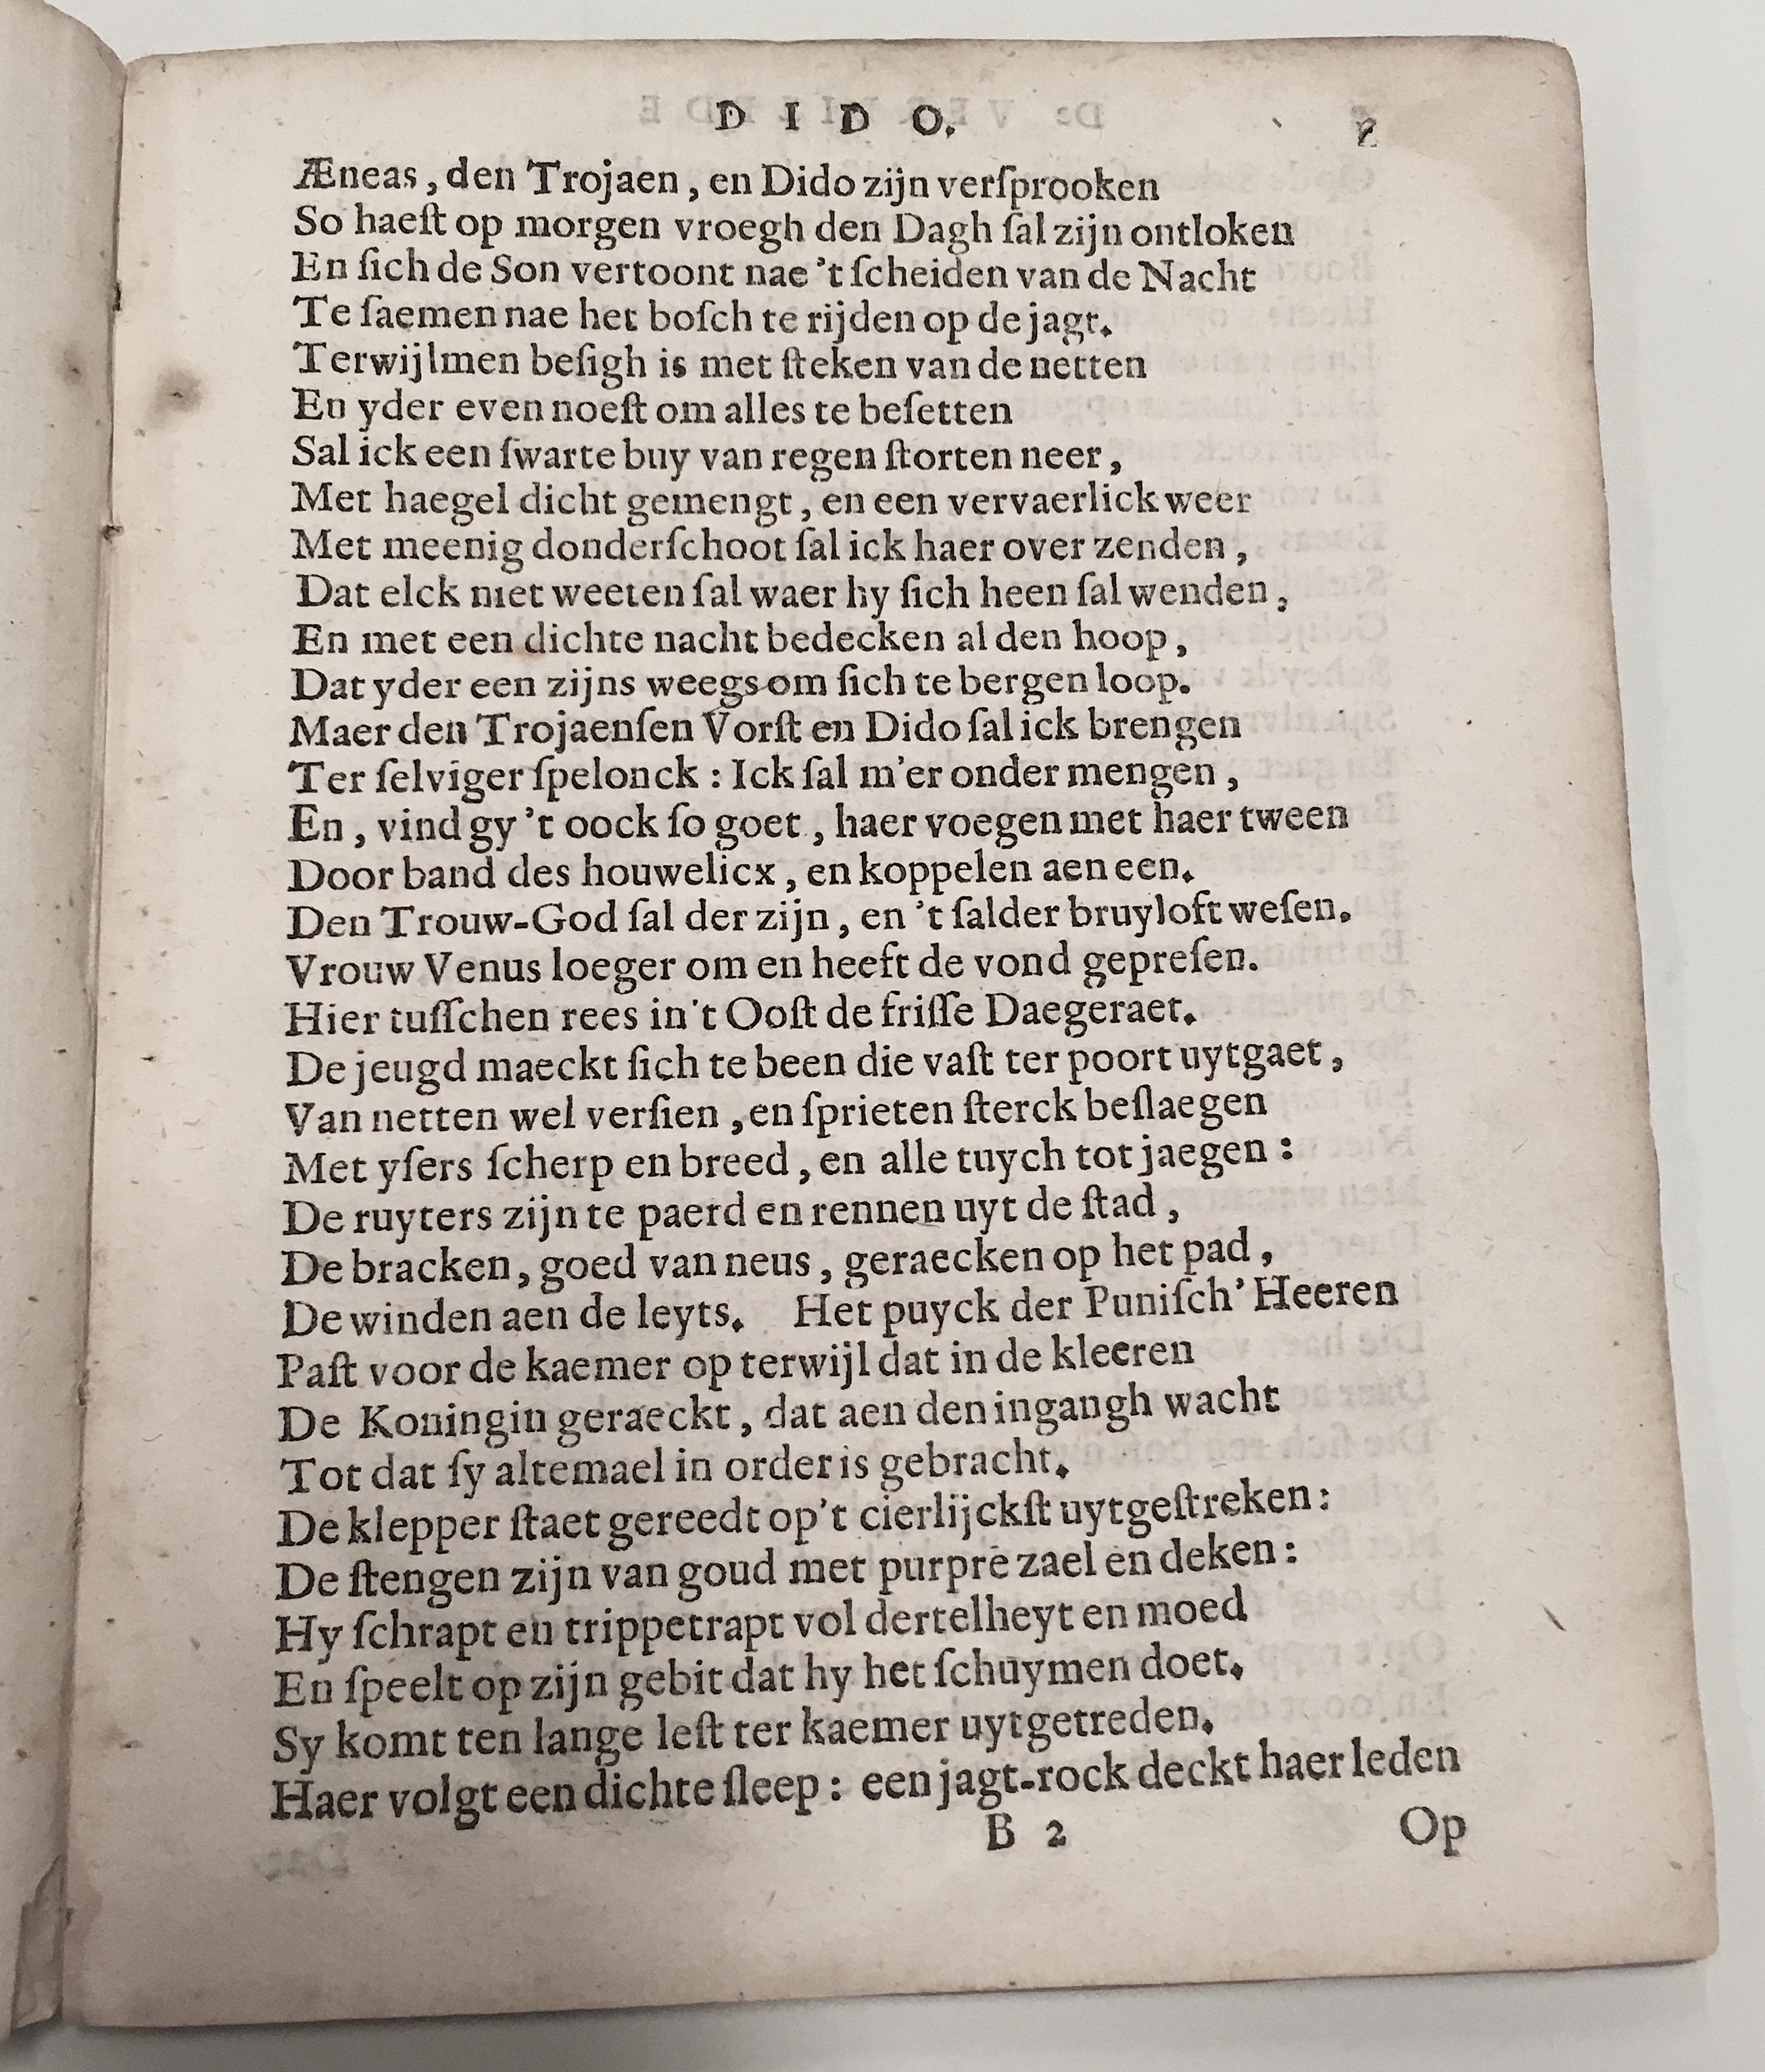 D I D O.
Æneas, den Trojaen, en Dido zijn verſprooken
So haeſt op morgen vroegh den Dagh ſal zijn ontloken
En ſich de Son vertoont nae 't ſcheiden van de Nacht
Te ſaemen nae het boſch te rijden op de jagt.
Terwijlmen beſigh is met ſteken van de netten
En yder even noeſt om alles te beſetten
Sal ick een ſwarte buy van regen ſtorten neer,
Met haegel dicht gemengt, en een vervaerlick weer
Met meenig donderſchoot ſal ick haer over zenden,
Dat elck niet weeten ſal waer hy ſich heen ſal wenden,
En met een dichte nacht bedecken al den hoop,
Dat yder een zijns weegs om ſich te bergen loop.
Maer den Trojaenſen Vorſt en Dido ſal ick brengen
Ter ſelviger ſpelonck: Ick ſal m'er onder mengen,
En, vind gy 't oock ſo goet, haer voegen met haer tween
Door band des houwelicx, en koppelen aen een.
Den Trouw-God ſal der zijn, en 't ſalder bruyloft weſen.
Vrouw Venus loeger om en heeft de vond gepreſen.
Hier tuſſchen rees in't Ooſt de friſſe Daegeraet.
De jeugd maeckt ſich te been die vaſt ter poort uytgaet,
Van netten wel verſien, en ſprieten ſterck beſlaegen
Met yſers ſcherp en breed, en alle tuych tot jaegen:
De ruyters zijn te paerd en rennen uyt de ſtad,
De bracken, goed van neus, geraecken op het pad,
De winden aen de leyts. Het puyck der Puniſch' Heeren
Paſt voor de kaemer op terwijl dat in de kleeren
De Koningin geraeckt, dat aen den ingangh wacht
Tot dat ſy altemael in order is gebracht.
De klepper ſtaet gereedt op't cierlijckſt uytgeſtreken:
De ſtengen zijn van goud met purpre zael en deken:
Hy ſchrapt en trippetrapt vol dertelheyt en moed
En ſpeelt op zijn gebit dat hy het ſchuymen doet.
Sy komt ten lange leſt ter kaemer uytgetreden.
Haer volgt een dichte ſleep: een jagt-rock deckt haer leden
B 2 Op